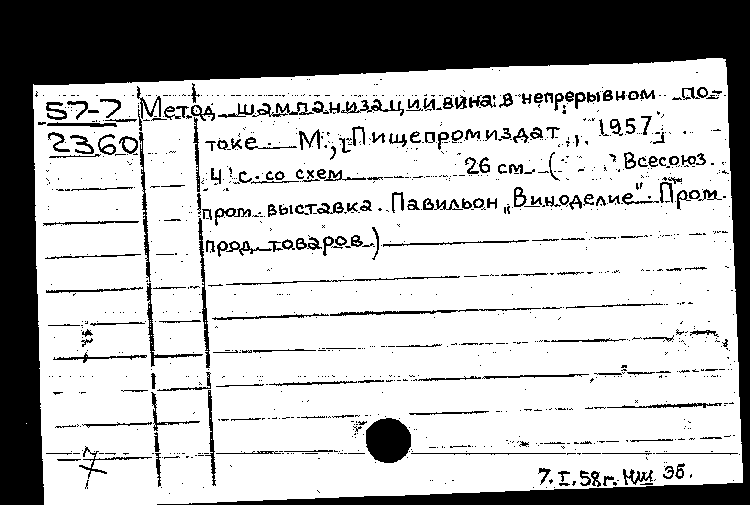 57-7 Метод шампанизации вина в непрерывном по-
2360 токе. М., [Пищепромиздат, 1957]
4 с. со схем. 26 см. ( Всесоюз.
пром. выставка. Павильон „Виноделие". Пром.
прод. товаров.)
7
7.I.58г. НШ Эб.